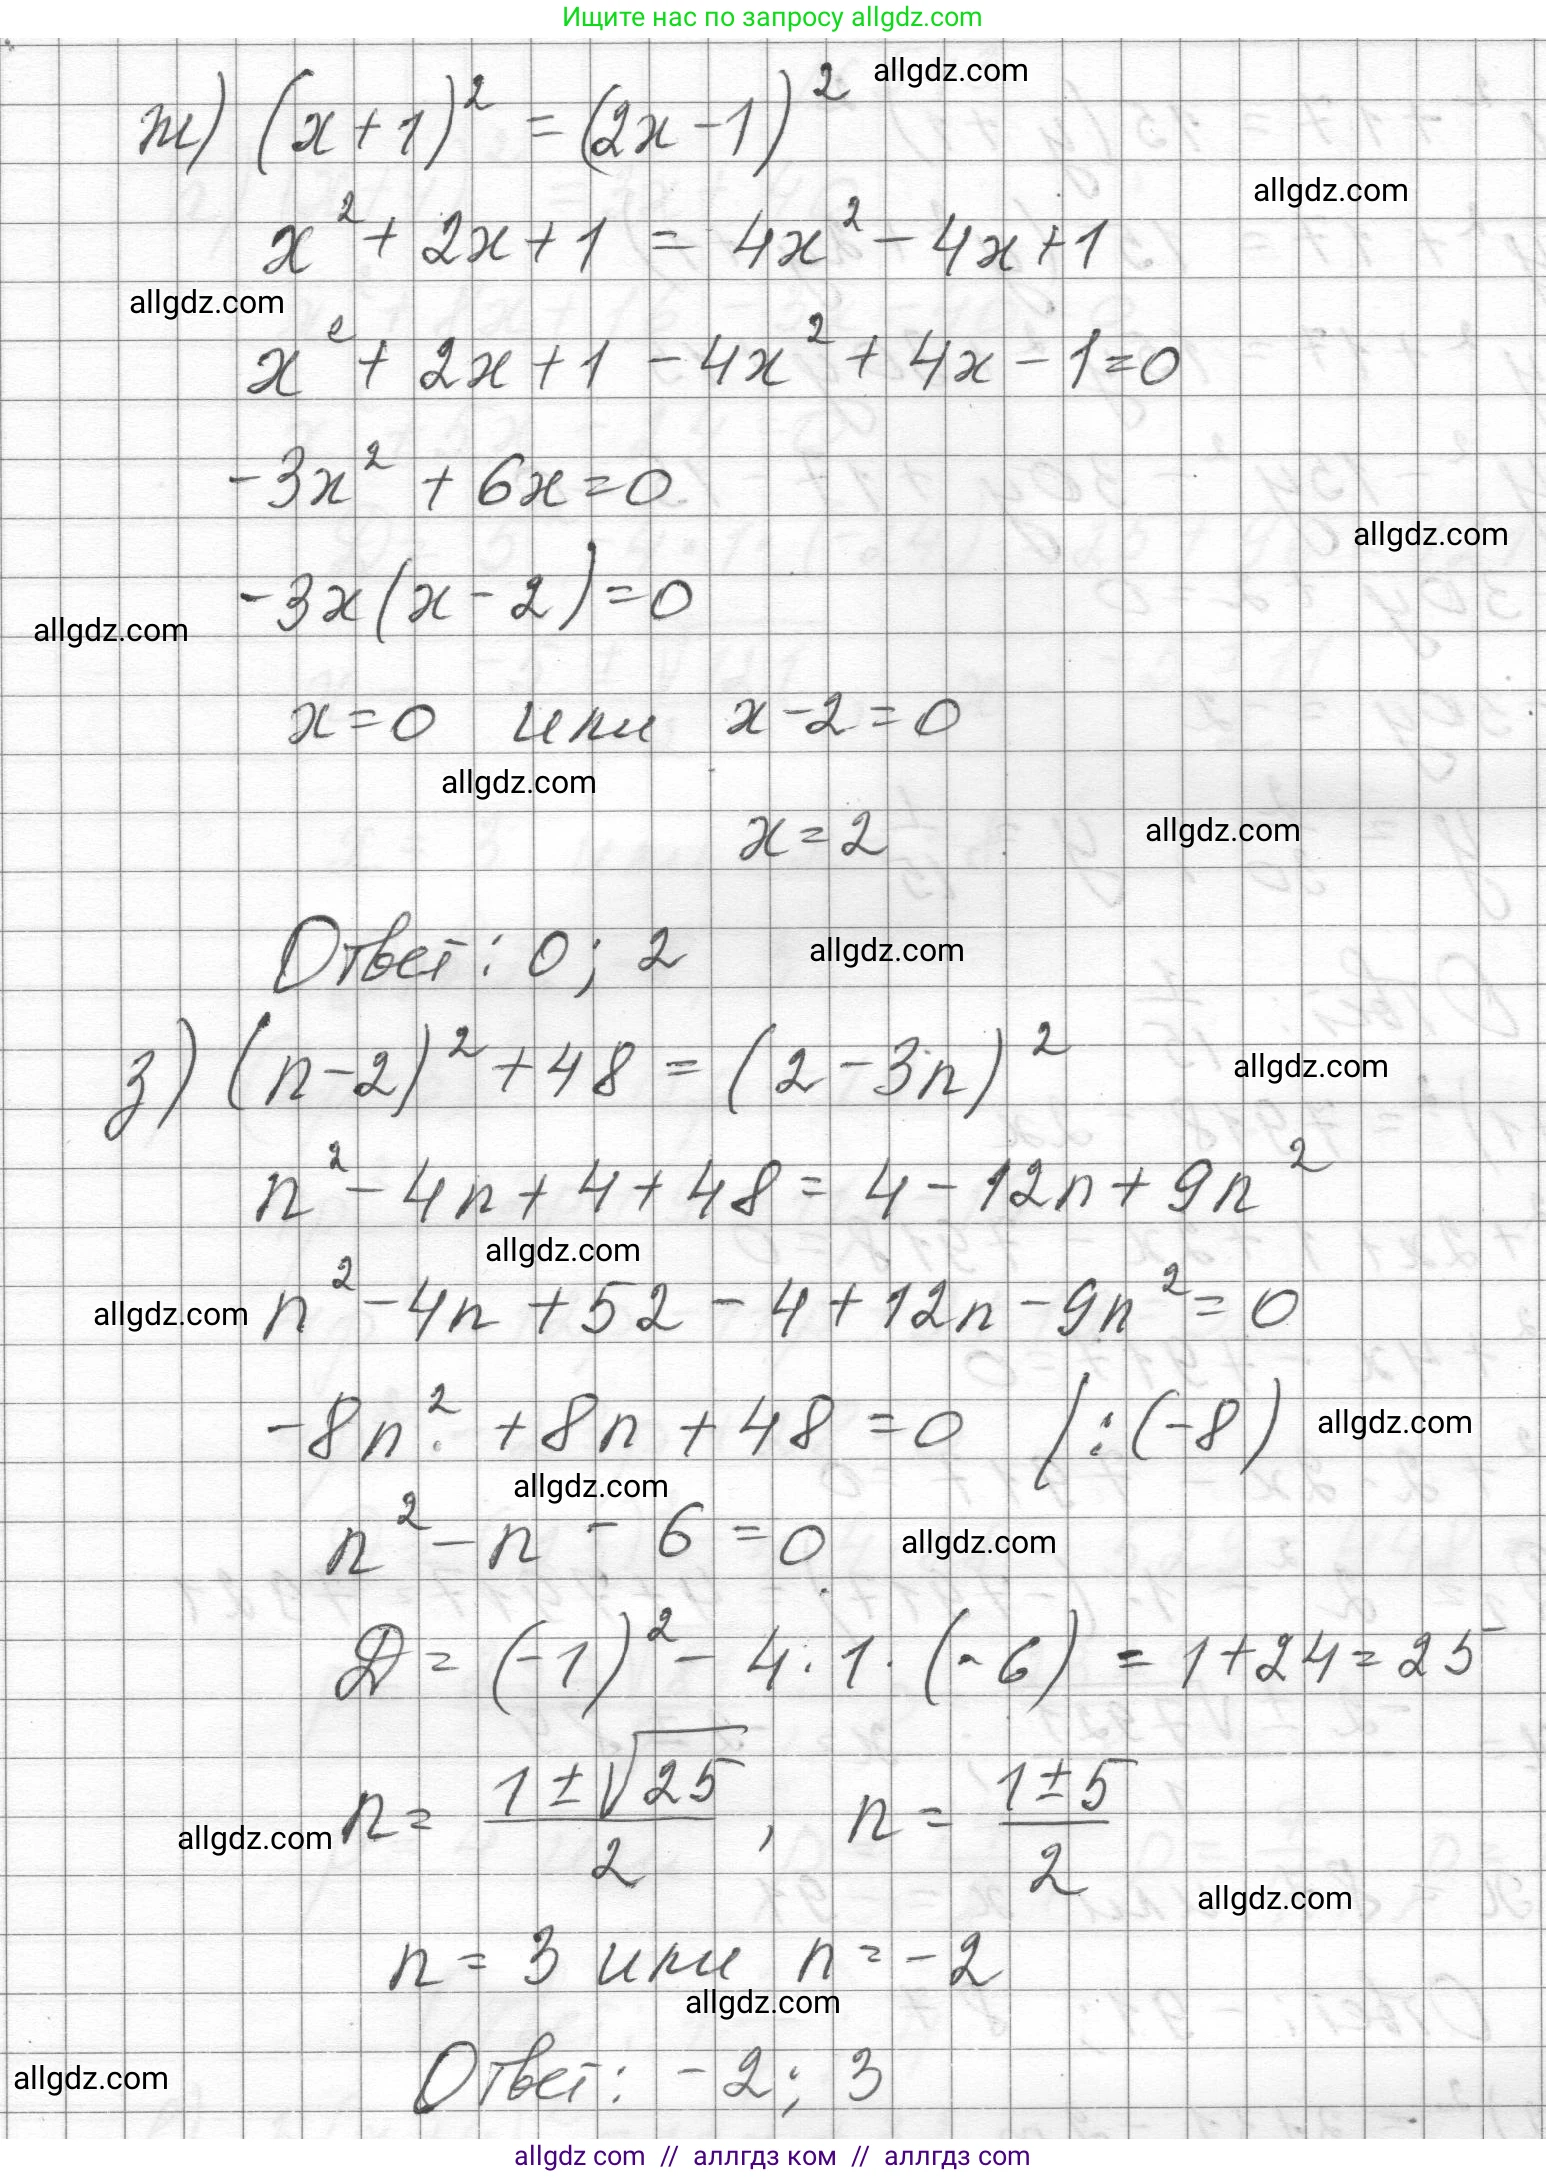 Ищите нас по запросу allgdz.com
allgdz.com
ж) (x+1)² = (2x-1)²
allgdz.com
x² + 2x + 1 = 4x² - 4x + 1
allgdz.com
x² + 2x + 1 - 4x² + 4x - 1 = 0
-3x² + 6x = 0
allgdz.com
-3x(x-2) = 0
allgdz.com
x = 0 или x - 2 = 0
allgdz.com
x = 2 allgdz.com
Ответ: 0; 2 allgdz.com
з) (n-2)² + 48 = (2-3n)² allgdz.com
n² - 4n + 4 + 48 = 4 - 12n + 9n²
allgdz.com
allgdz.com n² - 4n + 52 - 4 + 12n - 9n² = 0
-8n² + 8n + 48 = 0 | : (-8) allgdz.com
allgdz.com
n² - n - 6 = 0 allgdz.com
Д = (-1)² - 4·1·(-6) = 1 + 24 = 25
allgdz.com n = (1±√25)/2, n = (1±5)/2
allgdz.com
n = 3 или n = -2
allgdz.com
allgdz.com Ответ: -2; 3
allgdz.com // аллгдз ком // аллгдз com